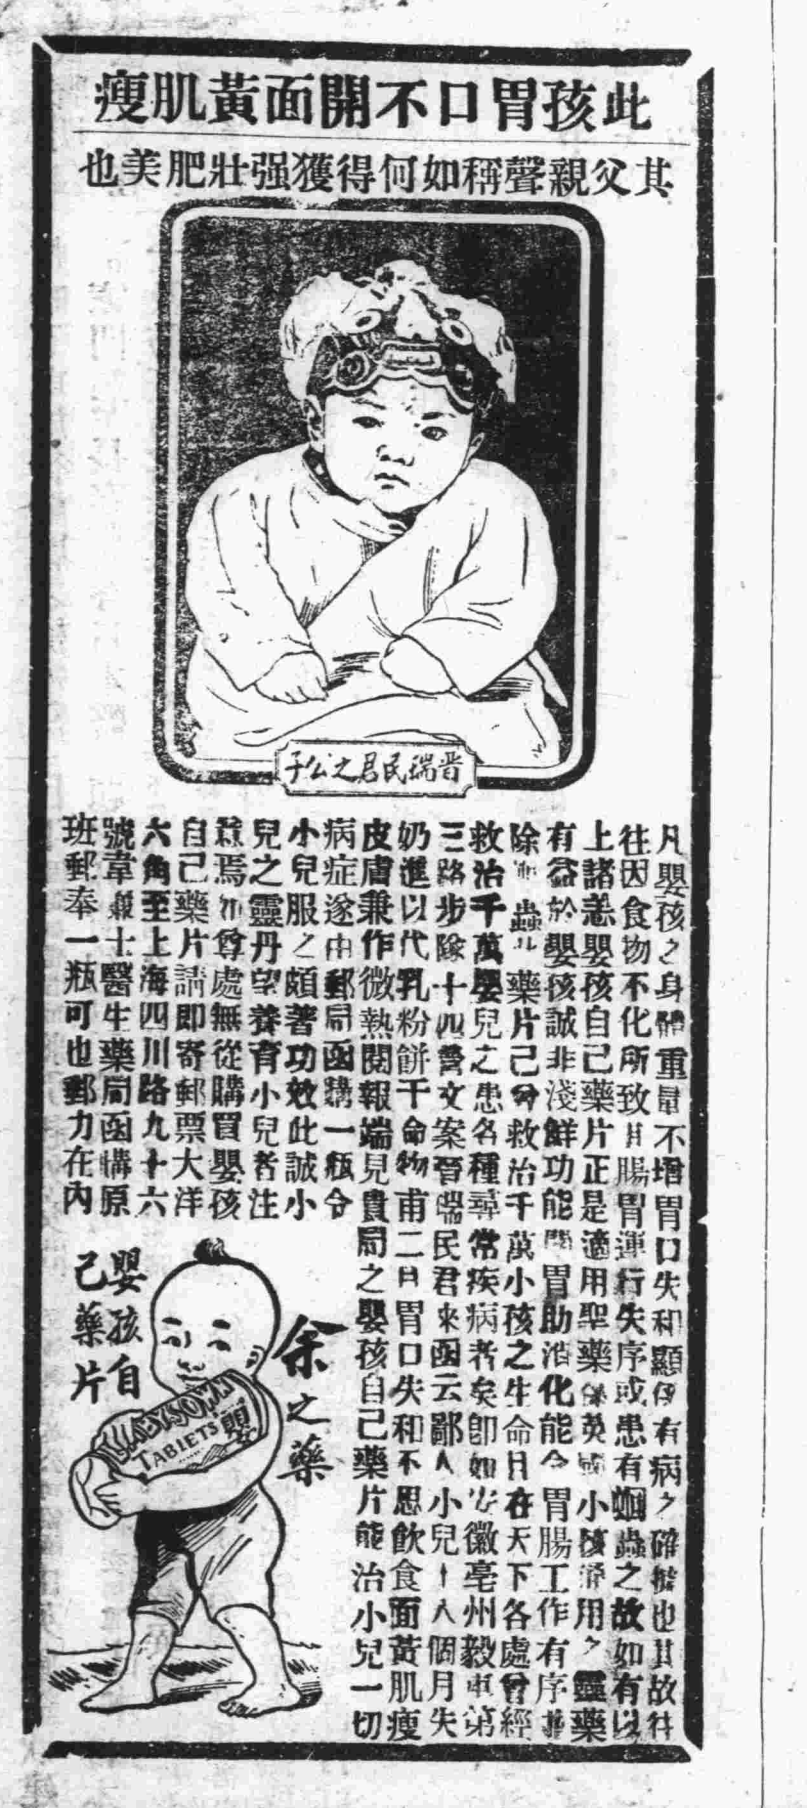 此孩胃口不開面黃肌瘦
其父親聲稱如何得獲强壯肥美也
晋瑞民君之公子
凡嬰孩之身體重量不增胃口失和顯係有病之確據也其故往
往因食物不化所致且腸胃運行失序或患有蛔蟲之故如有以
上諸恙嬰孩自己藥片正是適用聖藥英國小孩用之靈藥
有益於嬰孩誠非淺鮮功能開胃助消化能令胃腸工作有序
除蟲此藥片已曾救治千萬小孩之生命且在天下各處曾經
救治千萬嬰兒之患各種尋常疾病者矣卽如安徽亳州毅軍第
三路步隊十四營文案晉瑞民君來函云鄙人小兒十八個月失
奶進以代乳粉餅干命物甫二日胃口失和不思飲食面黃肌瘦
皮膚兼作微熱閱報端見貴局之嬰孩自己藥片能治小兒一切
病症遂由郵局函購一瓶令
小兒服之頗著功效此誠小
兒之靈丹望養育小兒者注
意焉如尊處無從購買嬰孩
自己藥片請卽寄郵票大洋
六角至上海四川路九十六
號韋廉士醫生藥局函購原
班郵奉一瓶可也郵力在內
余之藥
嬰孩自
己藥片
TABLETS
嬰